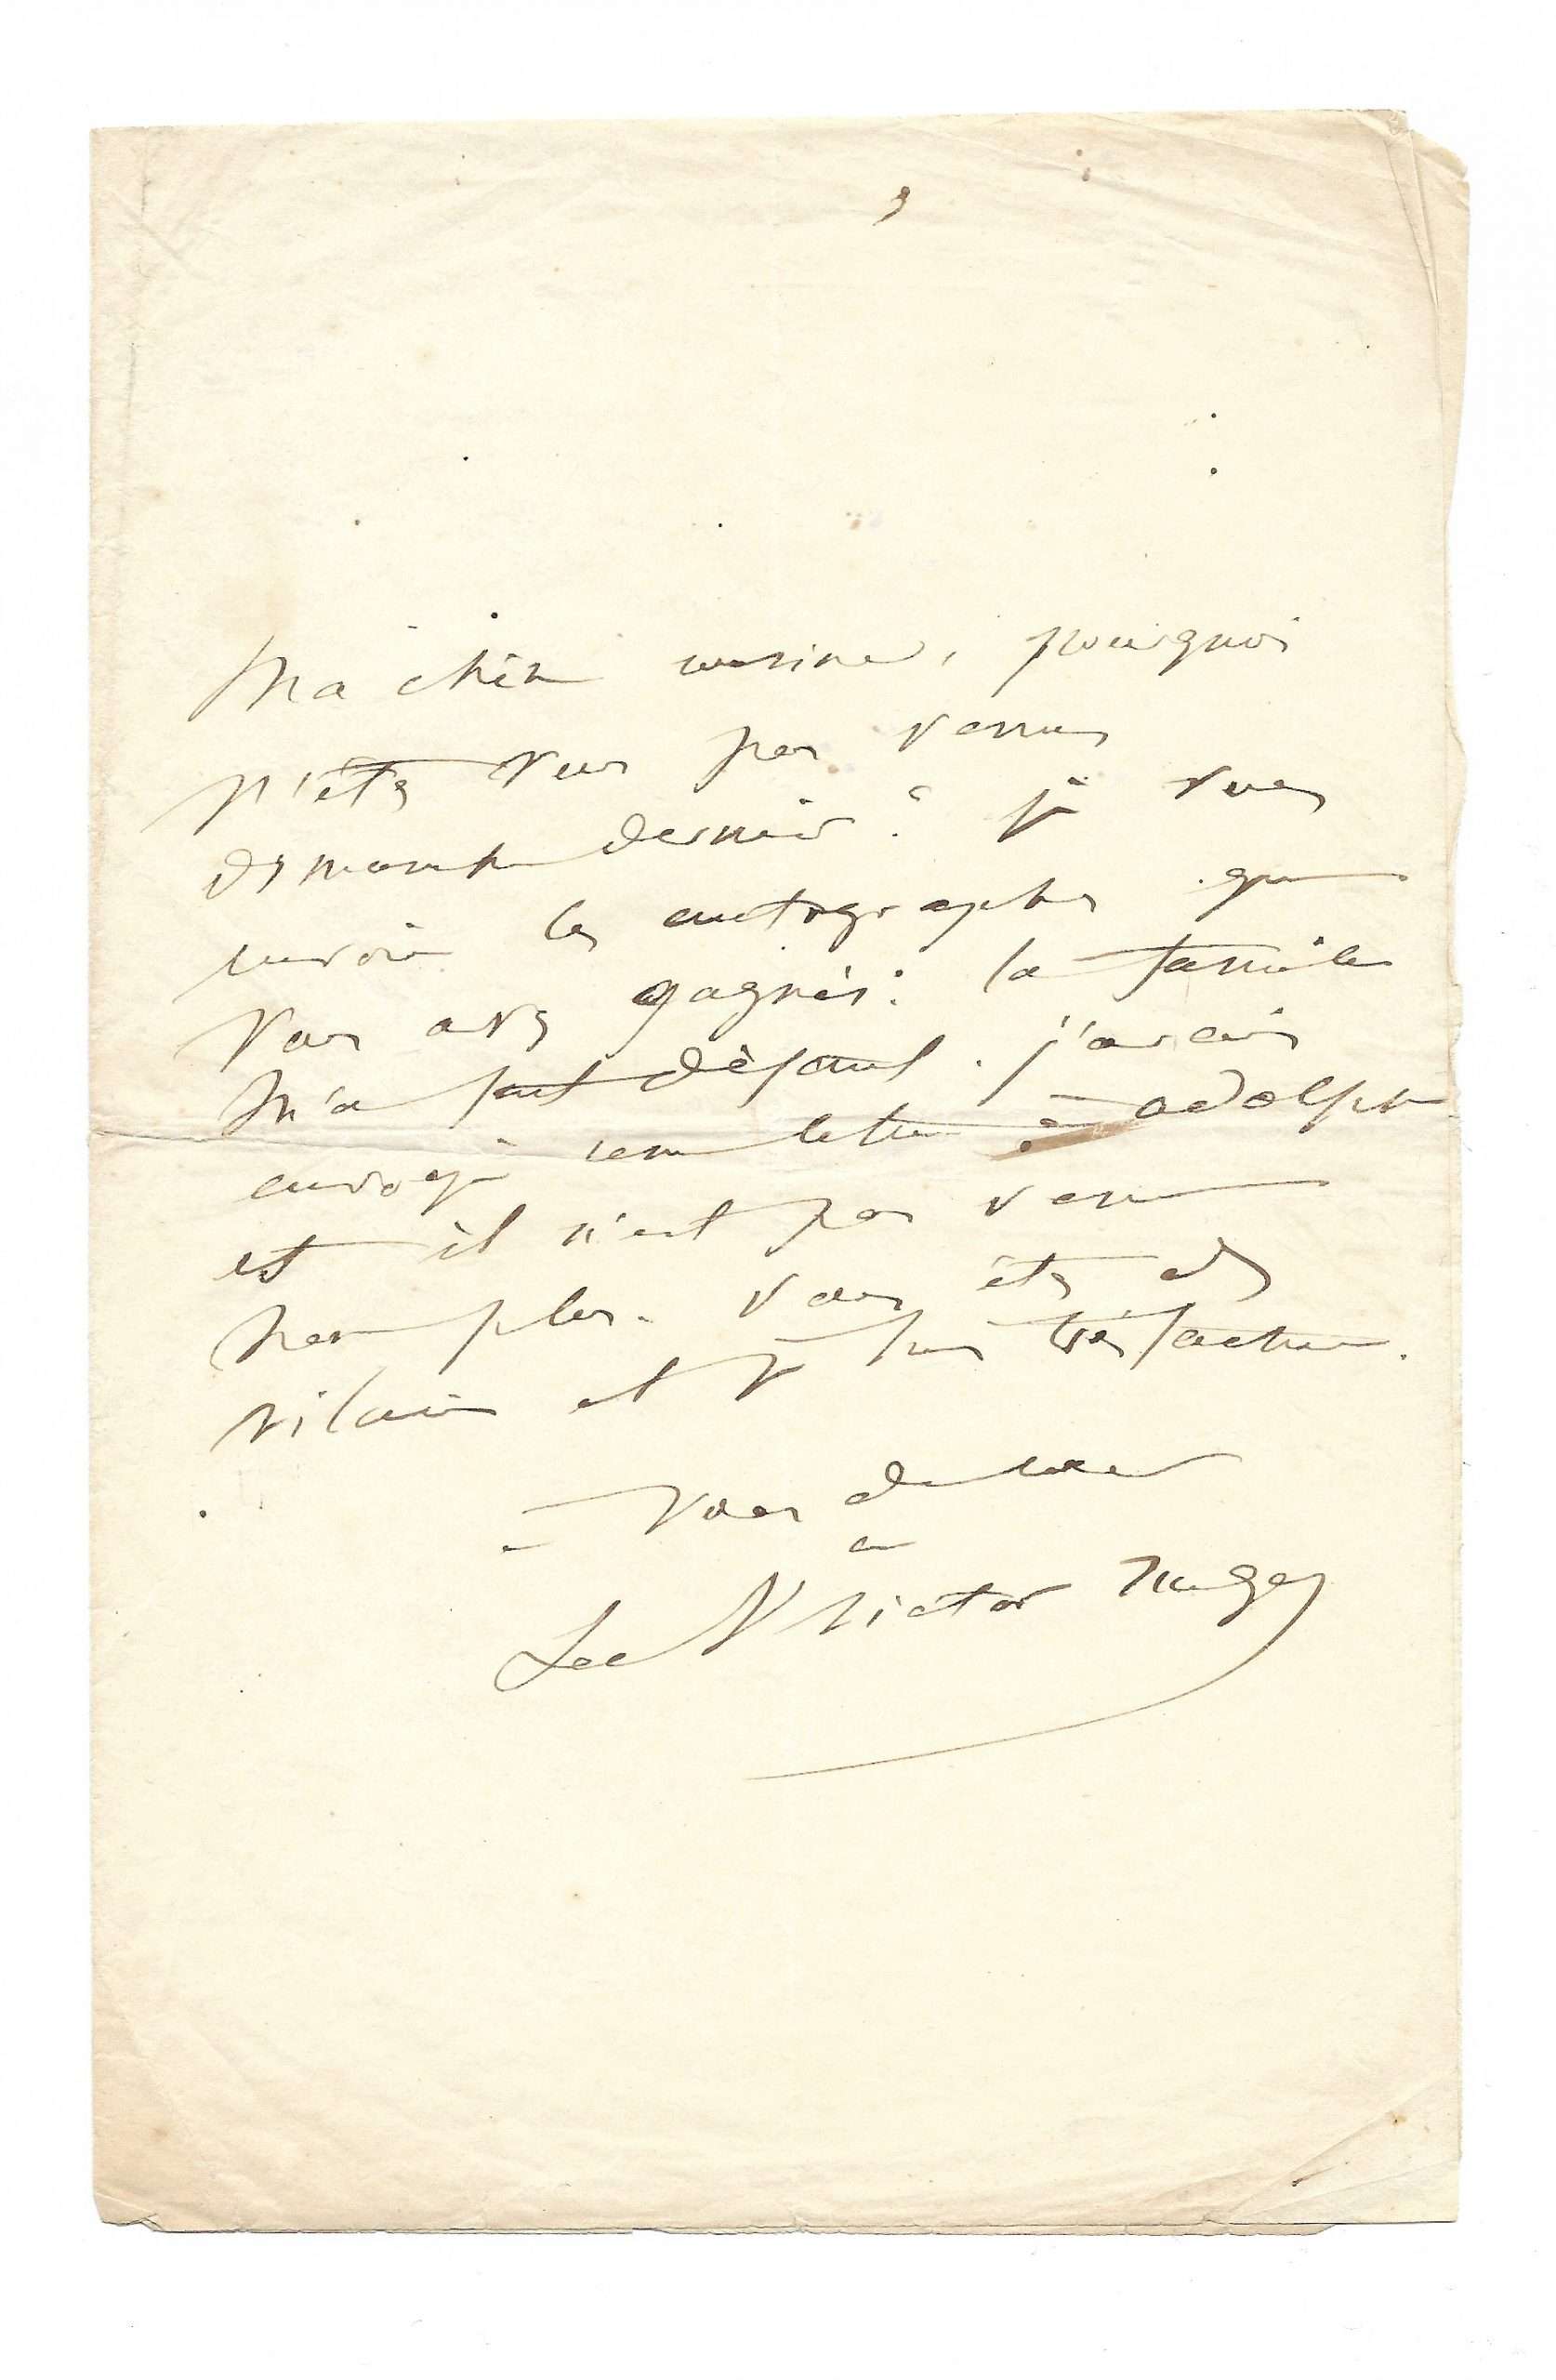 Ma chère cousine, pourquoi
n'êtes vous pas venus
dimanche dernier ? je vous
envoie les autographes que
vous avez gagnés. la famille
m'a fait défaut. j'avais
envoyé une lettre à adolphe
et il n'est pas venu
non plus. Vous êtes des
vilains et je suis très fâchée.
à vous de cœur
Léc Victor Hugo